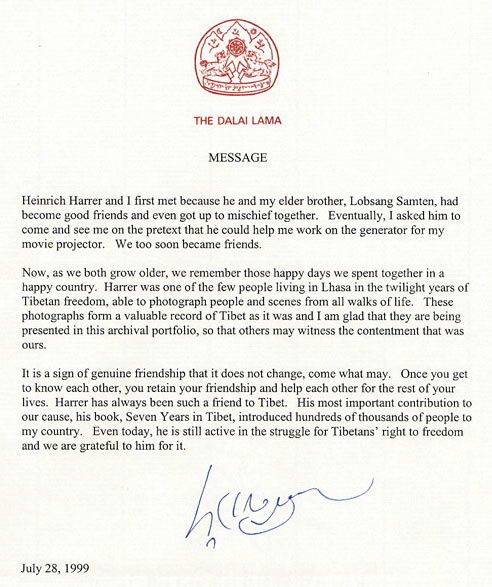 THE DALAI LAMA
MESSAGE
Heinrich Harrer and I first met because he and my elder brother, Lobsang Samten, had
become good friends and even got up to mischief together. Eventually, I asked him to
come and see me on the pretext that he could help me work on the generator for my
movie projector. We too soon became friends.
Now, as we both grow older, we remember those happy days we spent together in a
happy country. Harrer was one of the few people living in Lhasa in the twilight years of
Tibetan freedom, able to photograph people and scenes from all walks of life. These
photographs form a valuable record of Tibet as it was and I am glad that they are being
presented in this archival portfolio, so that others may witness the contentment that was
ours.
It is a sign of genuine friendship that it does not change, come what may. Once you get
to know each other, you retain your friendship and help each other for the rest of your
lives. Harrer has always been such a friend to Tibet. His most important contribution to
our cause, his book, Seven Years in Tibet, introduced hundreds of thousands of people to
my country. Even today, he is still active in the struggle for Tibetans' right to freedom
and we are grateful to him for it.
July 28, 1999